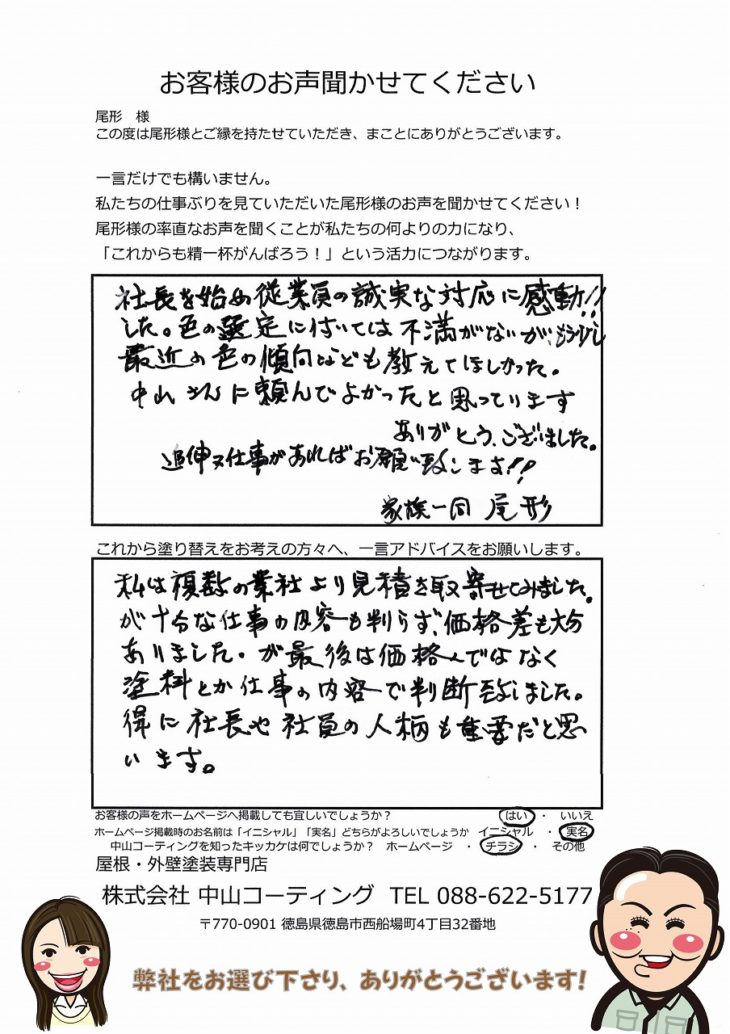 お客様のお声聞かせてください
尾形　様
この度は尾形様とご縁を持たせていただき、まことにありがとうございます。
一言だけでも構いません。
私たちの仕事ぶりを見ていただいた尾形様のお声を聞かせてください！
尾形様の率直なお声を聞くことが私たちの何よりの力になり、
「これからも精一杯がんばろう！」という活力につながります。
社長を始め従業員の誠実な対応に感動!!
した。色の選定に付いては不満がないが、もう少し
最近の色の傾向なども教えてほしかった。
中山さんに頼んでよかったと思っています
ありがとう、ございました。
追伸又仕事があればお願い致します!!
家族一同 尾形
これから塗り替えをお考えの方々へ、一言アドバイスをお願いします。
私は複数の業社より見積を取寄せてみました。
が十分な仕事の内容も判らず、価格差も大分
ありました。が最後は価格んではなく
塗料とか仕事の内容で判断致しました。
得に社長や社員の人柄も重要だと思
います。
お客様の声をホームページへ掲載しても宜しいでしょうか？　はい ・ いいえ
ホームページ掲載時のお名前は「イニシャル」「実名」どちらがよろしいでしょうか　イニシャル ・ 実名
中山コーティングを知ったキッカケは何でしょうか？　ホームページ ・ チラシ ・ その他
屋根・外壁塗装専門店
株式会社 中山コーティング　TEL 088-622-5177
〒770-0901 徳島県徳島市西船場町4丁目32番地
弊社をお選び下さり、ありがとうございます!